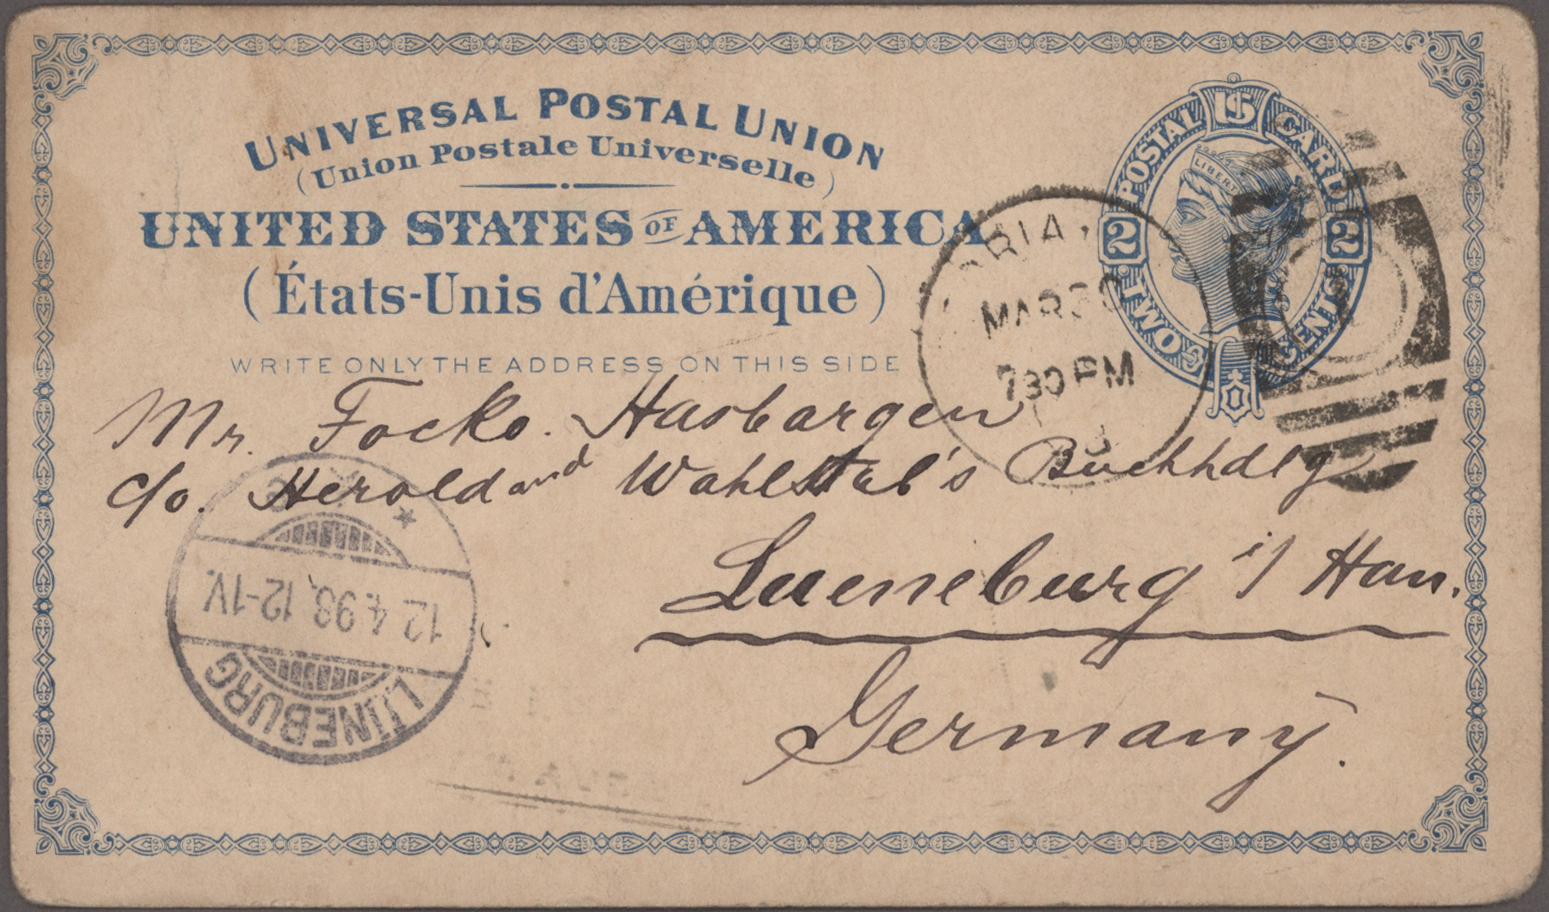 UNIVERSAL POSTAL UNION
(Union Postale Universelle)
UNITED STATES OF AMERICA
(États-Unis d'Amérique)
WRITE ONLY THE ADDRESS ON THIS SIDE
POSTAL CARD
LIBERTY
2 2
TWO CENTS
MAR 30
730 PM
Mr. Focko Hasbargen
c/o. Herold and Wahlstab's Buchhdlg
Lueneburg i/ Han.
Germany.
12.4.98. 12-1V.
LÜNEBURG